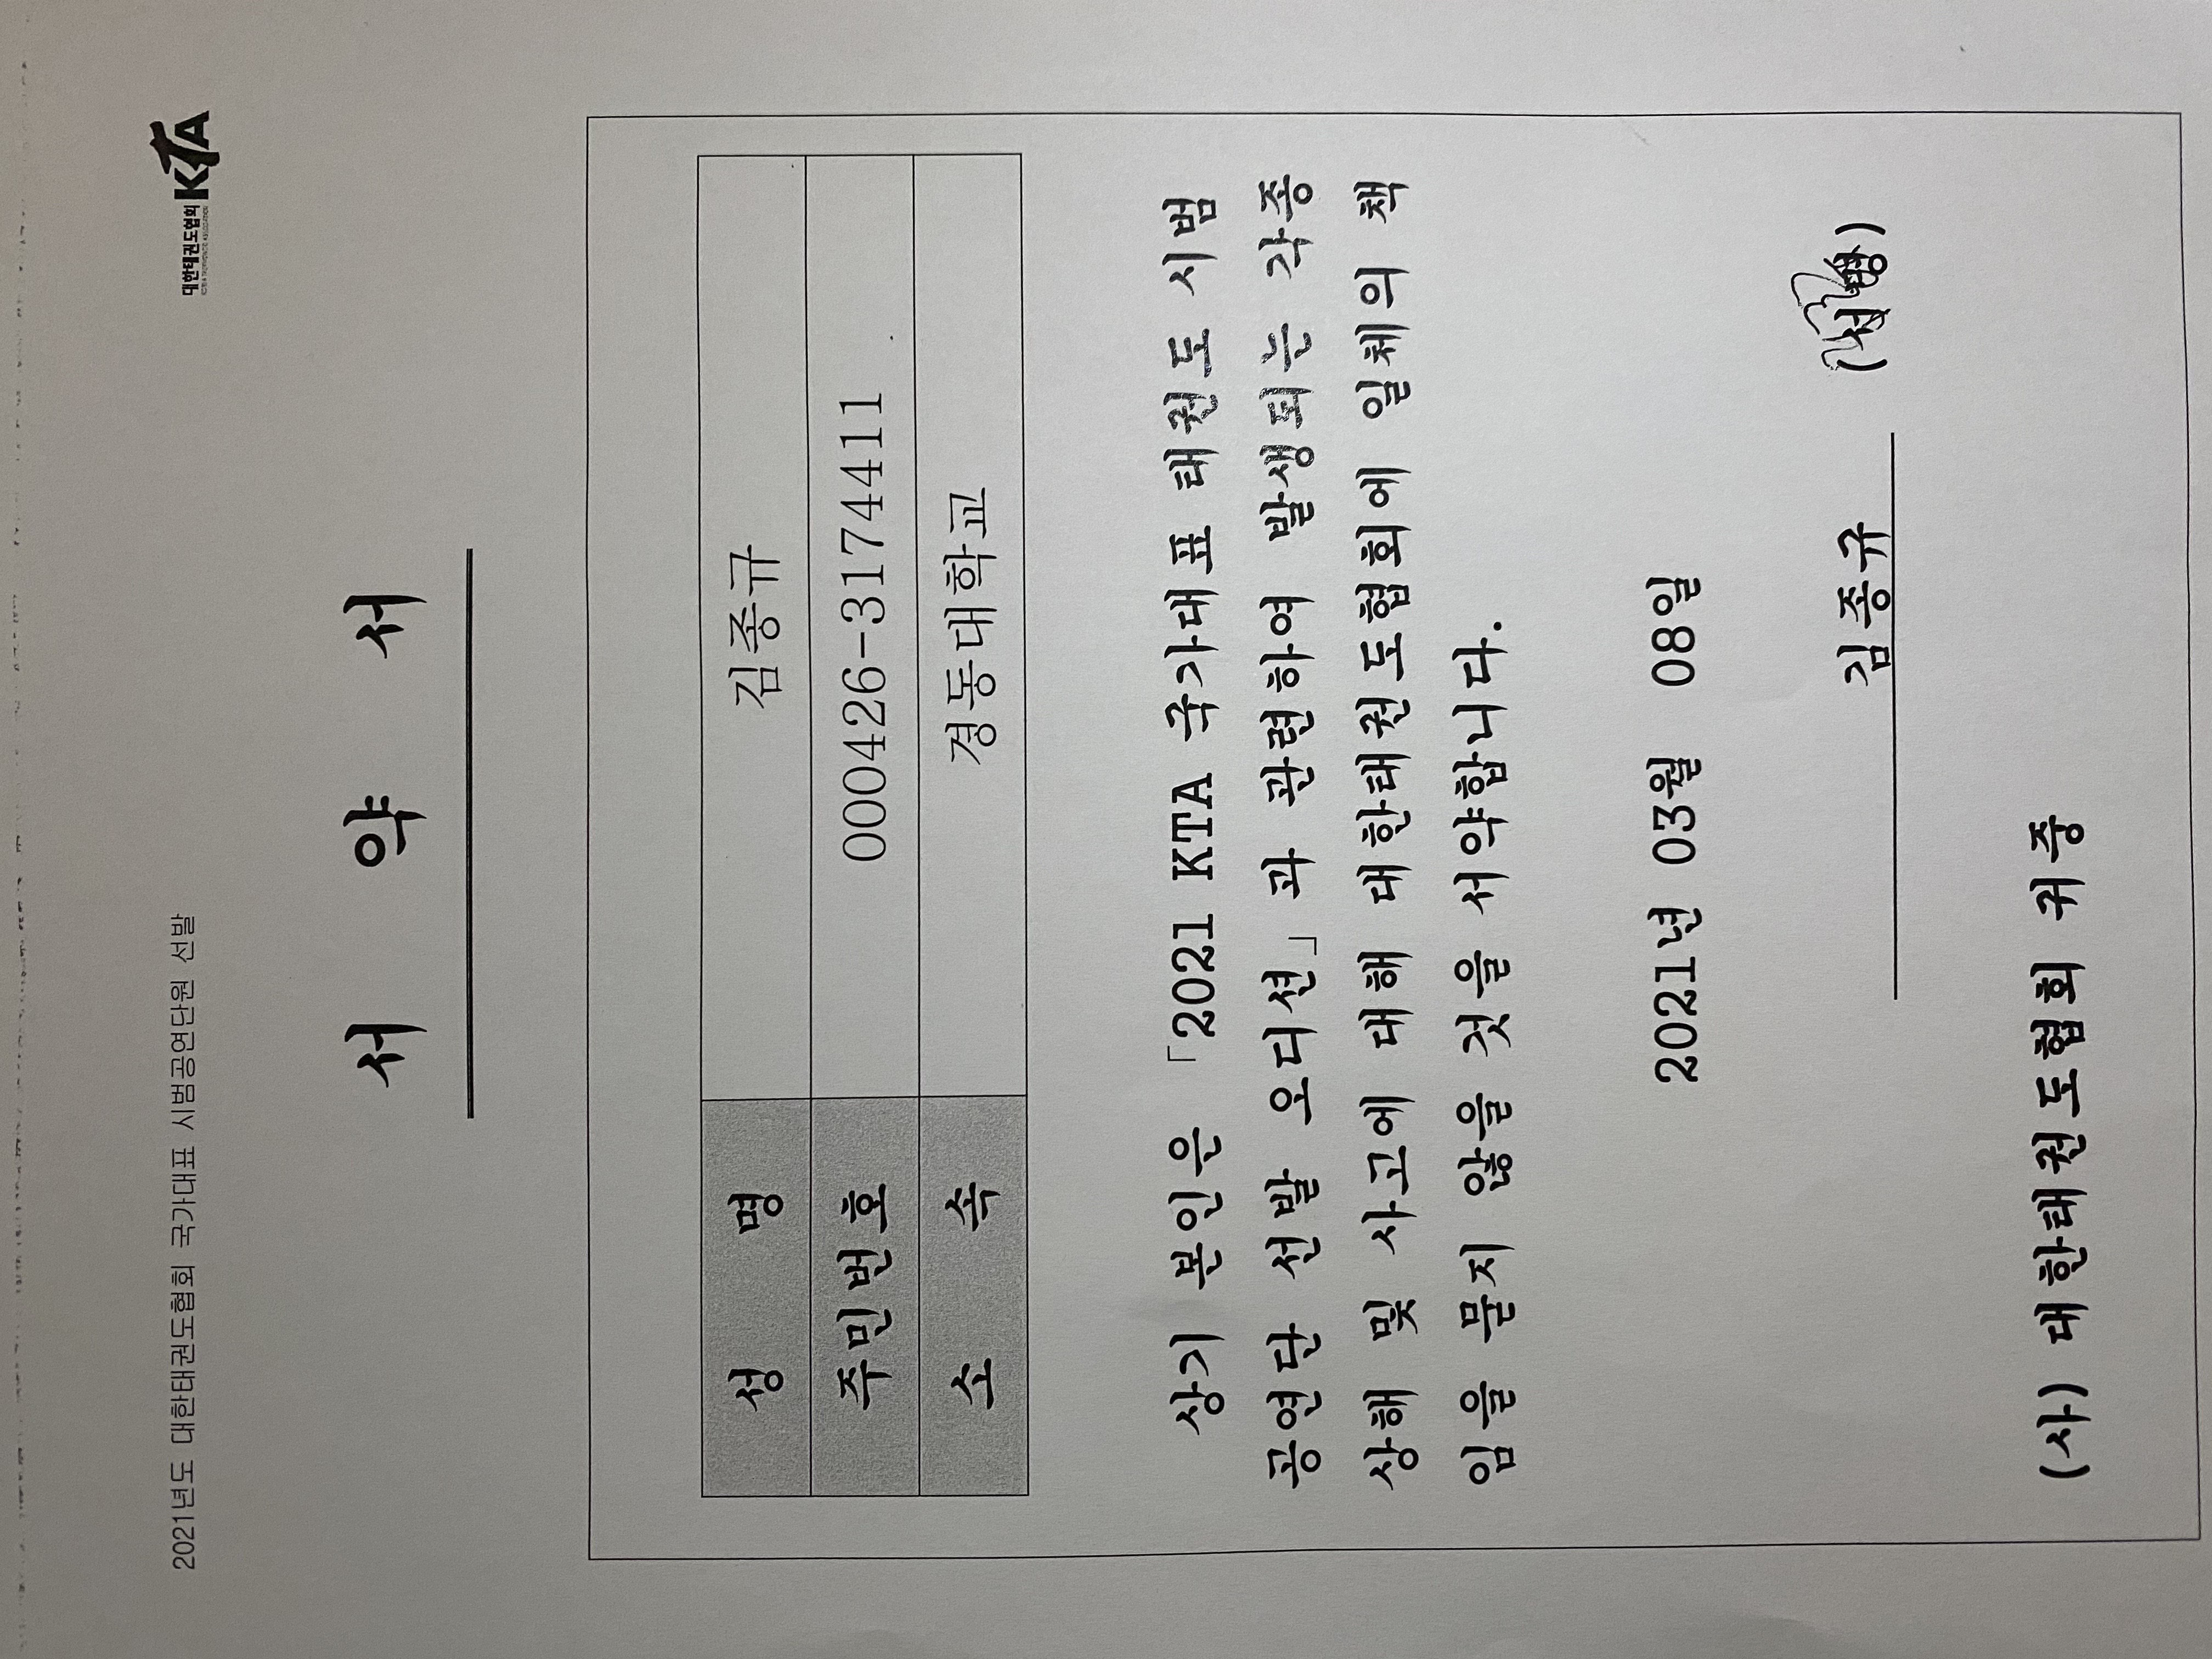 2021년도 대한태권도협회 국가대표 시범공연단원 선발
대한태권도협회 KTA
서 약 서
성 명 김종규
주민번호 000426-3174411
소 속 경동대학교
상기 본인은 「2021 KTA 국가대표 태권도 시범
공연단 선발 오디션」과 관련하여 발생되는 각종
상해 및 사고에 대해 대한태권도협회에 일체의 책
임을 묻지 않을 것을 서약합니다.
2021년 03월 08일
김종규 (서명)
(사) 대한태권도협회 귀중